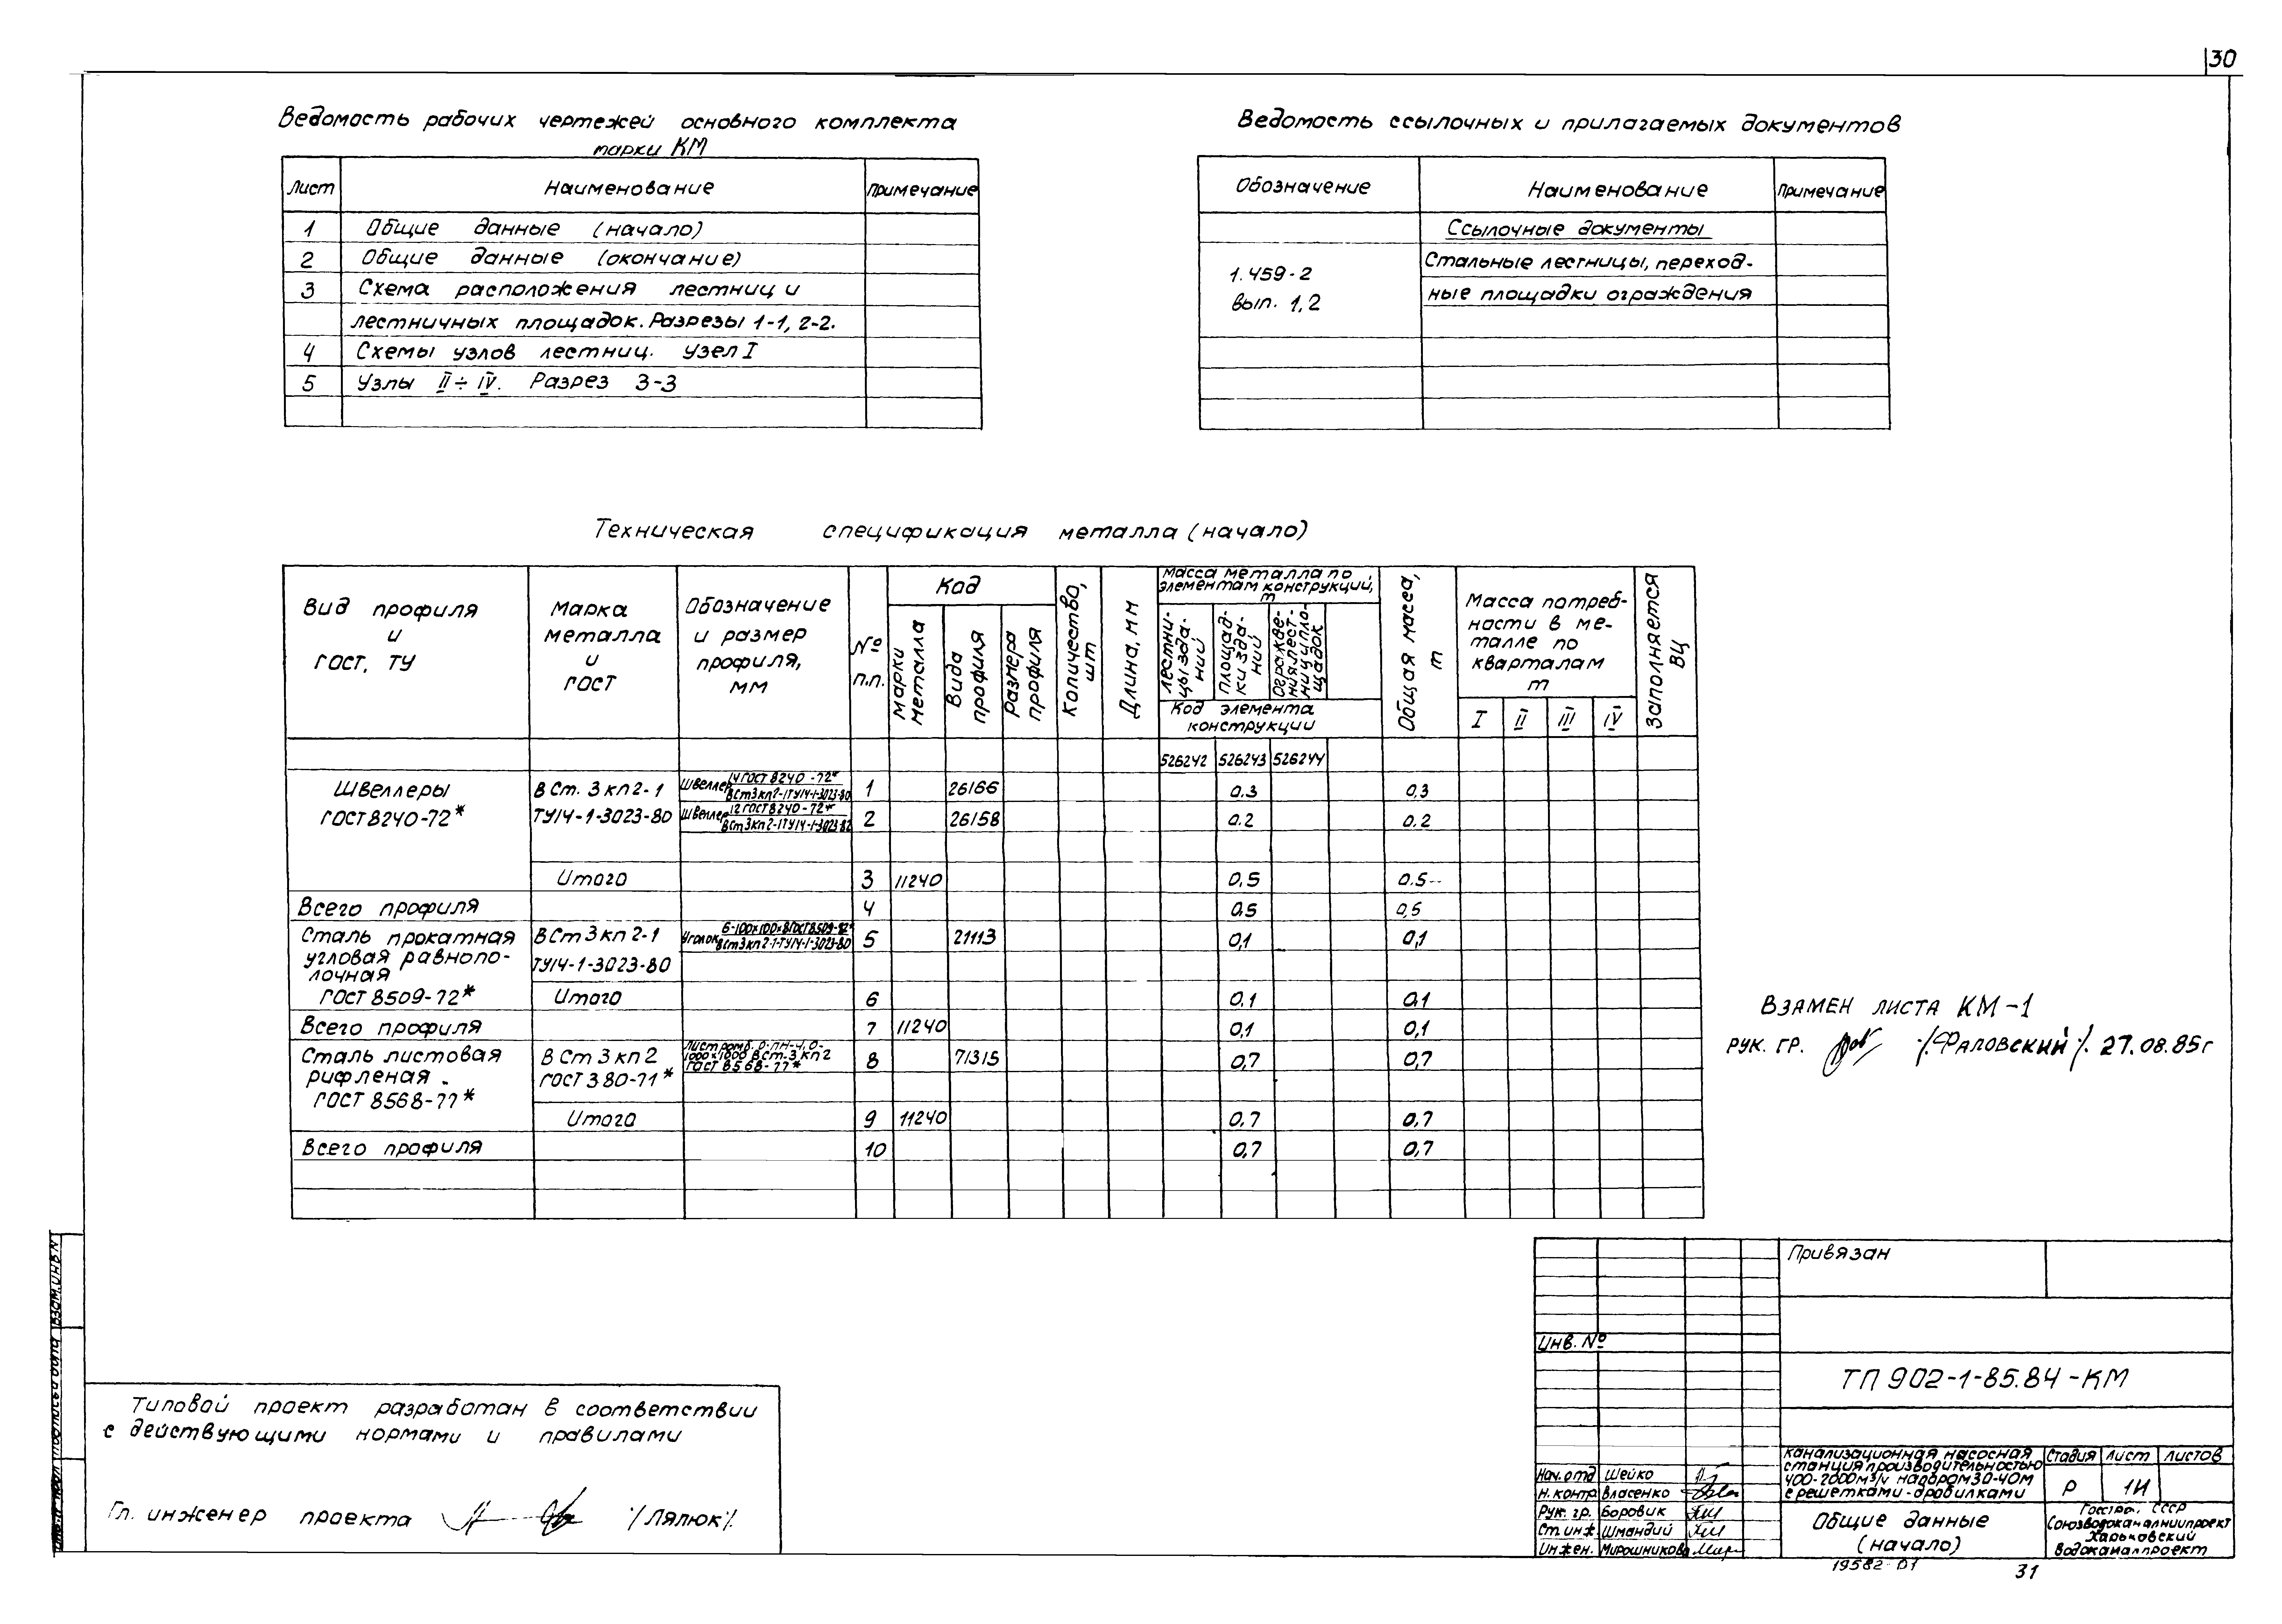 30
Ведомость рабочих чертежей основного комплекта
марки КМ
Лист Наименование Примечание
1 Общие данные (начало)
2 Общие данные (окончание)
3 Схема расположения лестниц и
лестничных площадок. Разрезы 1-1, 2-2.
4 Схемы узлов лестниц. Узел I
5 Узлы II ÷ IV. Разрез 3-3
Ведомость ссылочных и прилагаемых документов
Обозначение Наименование Примечание
Ссылочные документы
1.459-2
вып. 1,2
Стальные лестницы, переход-
ные площадки ограждения
Техническая спецификация металла (начало)
Вид профиля
и
ГОСТ, ТУ
Марка
металла
и
ГОСТ
Обозначение
и размер
профиля,
мм
№
п.п.
Код
Марки
металла
Вида
профиля
Размера
профиля
Количество,
шт
Длина, мм
Масса металла по
элементам конструкций,
т
Лестни-
цы зда-
ний
Площад-
ки зда-
ний
Огражде-
ния лест-
ниц и пло-
щадок
Код элемента
конструкции
Общая масса,
т
Масса потреб-
ности в ме-
талле по
кварталам
т
I II III IV
Заполняется
ВЦ
526242 526243 526244
Швеллеры
ГОСТ 8240-72*
ВСт. 3кп2-1
ТУ14-1-3023-80
Швеллер 14 ГОСТ 8240-72*
ВСт3кп2-1ТУ14-1-3023-80
1 26166 0.3 0,3
Швеллер 12 ГОСТ 8240-72*
ВСт3кп2-1ТУ14-1-3023-82
2 26158 0.2 0.2
Итого 3 11240 0,5 0.5--
Всего профиля 4 0.5 0,5
Сталь прокатная
угловая равнопо-
лочная
ГОСТ 8509-72*
ВСт3кп2-1
ТУ14-1-3023-80
Уголок Б-100х100х8 ГОСТ 8509-72*
ВСт3кп2-1-ТУ14-1-3023-80
5 21113 0,1 0,1
Итого 6 0.1 0.1
Всего профиля 7 11240 0,1 0,1
Сталь листовая
рифленая.
ГОСТ 8568-77*
ВСт3кп2
ГОСТ 380-71*
Лист ромб. О-ПН-4,0-
1000х1000 ВСт.3кп2
ГОСТ 8568-77*
8 71315 0,7 0,7
Итого 9 11240 0.7 0.7
Всего профиля 10 0,7 0,7
Взамен листа КМ-1
Рук. гр. /Фаловский/. 27.08.85г
Типовой проект разработан в соответствии
с действующими нормами и правилами
Гл. инженер проекта /Лялюк/.
Взам. инв N
Подпись и дата
Привязан
Инв. №
ТП 902-1-85.84-КМ
Канализационная насосная
станция производительностью
400-2000м³/ч напором 30-40м
с решетками-дробилками
Стадия Лист Листов
Р 1И
Нач. отд Шейко
Н. контр Власенко
Рук. гр. Боровик
Ст. инж. Шмандий
Инжен. Мирошникова
Общие данные
(начало)
Госстрой СССР
Союзводоканалниипроект
Харьковский
Водоканалпроект
19582-01
31